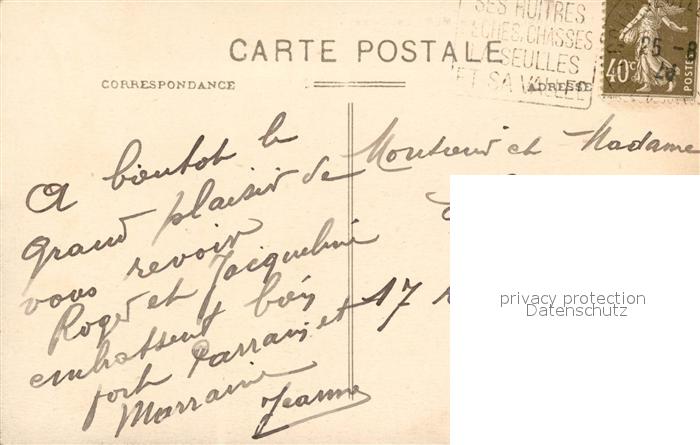 SES HUITRES
PÊCHES, CHASSES
SEULLES
ET SA VALLÉE
25 -8
40c
POSTES
CARTE POSTALE
CORRESPONDANCE
ADRESSE
A bientot le
grand plaisir de
vous revoir
Roger et Jacqueline
embrassent bien
fort Parrain et
Marraine
Jeanne
Monsieur et Madame
17
privacy protection
Datenschutz